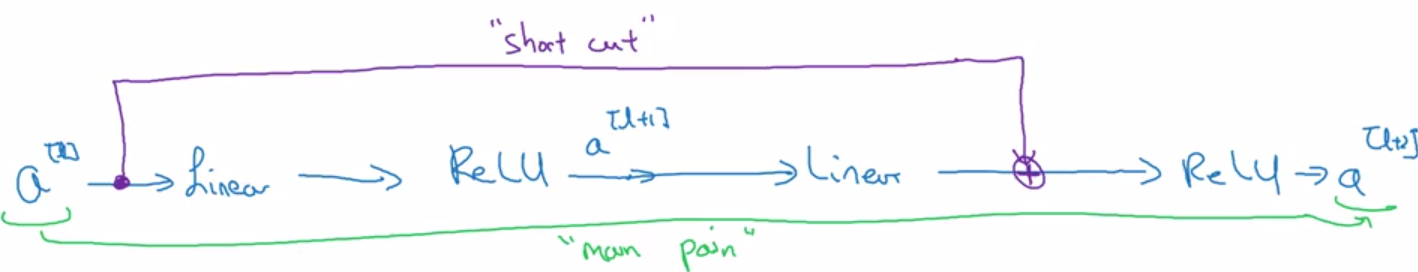 "short cut"
a^[l] → Linear → ReLU a^[l+1] → Linear → + → ReLU → a^[l+2]
"main pain"